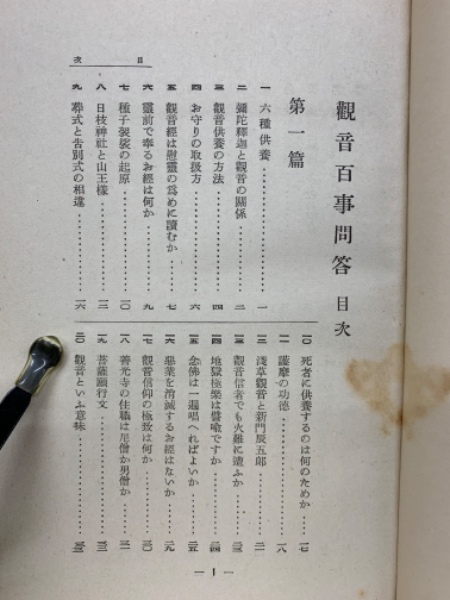 觀音百事問答 目次
第一篇
一 六種供養…………一
二 彌陀釋迦と觀音の關係…………二
三 觀音供養の方法…………四
四 お守りの取扱方…………六
五 觀音經は慰靈の爲めに讀むか…………七
六 靈前で奉るお經は何か…………九
七 種子袈裟の起原…………一〇
八 日枝神社と山王樣…………一二
九 葬式と告別式の相違…………一六
一〇 死者に供養するのは何のためか……一七
一一 護摩の功德…………一八
一二 淺草觀音と新門辰五郎…………二一
一三 觀音信者でも火難に遭ふか…………二三
一四 地獄極樂は譬喩ですか…………二四
一五 念佛は一遍唱へればよいか…………二五
一六 惡業を消滅するお經はないか…………二九
一七 觀音信仰の極致は何か…………三〇
一八 善光寺の住職は尼僧か男僧か…………三一
一九 菩薩願行文…………三二
二〇 觀音といふ意味…………三三
目次
— 1 —